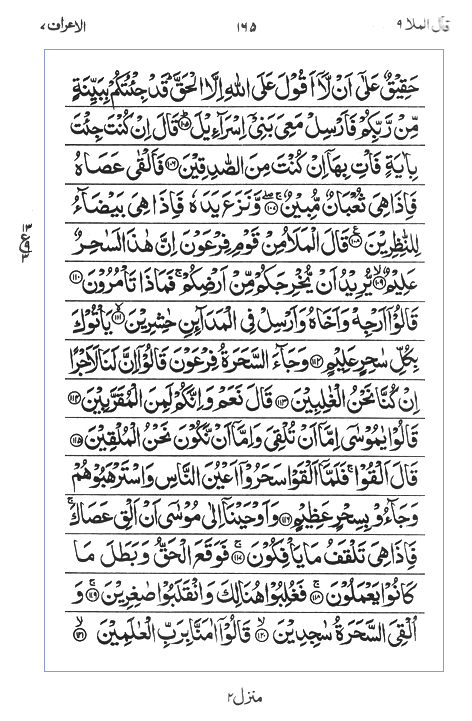 قال الملا ٩ ١٦٥ الاعراف ٧
حَقِيْقٌ عَلٰٓى اَنْ لَّاۤ اَقُوْلَ عَلَى اللّٰهِ اِلَّا الْحَقَّ ؕ قَدْ جِئْتُكُمْ بِبَيِّنَةٍ
مِّنْ رَّبِّكُمْ فَاَرْسِلْ مَعِيَ بَنِيْۤ اِسْرَآءِيْلَ ؕ﴿۱۰۵﴾ قَالَ اِنْ كُنْتَ جِئْتَ
بِاٰيَةٍ فَاْتِ بِهَاۤ اِنْ كُنْتَ مِنَ الصّٰدِقِيْنَ ﴿۱۰۶﴾ فَاَلْقٰى عَصَاهُ
فَاِذَا هِيَ ثُعْبَانٌ مُّبِيْنٌ ۚۖ﴿۱۰۷﴾ وَّنَزَعَ يَدَهٗ فَاِذَا هِيَ بَيْضَآءُ
لِلنّٰظِرِيْنَ ﴿۱۰۸﴾ قَالَ الْمَلَاُ مِنْ قَوْمِ فِرْعَوْنَ اِنَّ هٰذَا لَسٰحِرٌ
عَلِيْمٌ ۙ﴿۱۰۹﴾ يُّرِيْدُ اَنْ يُّخْرِجَكُمْ مِّنْ اَرْضِكُمْ ۚ فَمَاذَا تَاْمُرُوْنَ ﴿۱۱۰﴾
قَالُوْۤا اَرْجِهْ وَاَخَاهُ وَاَرْسِلْ فِي الْمَدَآئِنِ حٰشِرِيْنَ ۙ﴿۱۱۱﴾ يَاْتُوْكَ
بِكُلِّ سٰحِرٍ عَلِيْمٍ ﴿۱۱۲﴾ وَجَآءَ السَّحَرَةُ فِرْعَوْنَ قَالُوْۤا اِنَّ لَنَا لَاَجْرًا
اِنْ كُنَّا نَحْنُ الْغٰلِبِيْنَ ﴿۱۱۳﴾ قَالَ نَعَمْ وَاِنَّكُمْ لَمِنَ الْمُقَرَّبِيْنَ ﴿۱۱۴﴾
قَالُوْا يٰمُوْسٰۤى اِمَّاۤ اَنْ تُلْقِيَ وَاِمَّاۤ اَنْ نَّكُوْنَ نَحْنُ الْمُلْقِيْنَ ﴿۱۱۵﴾
قَالَ اَلْقُوْا ۚ فَلَمَّاۤ اَلْقَوْا سَحَرُوْۤا اَعْيُنَ النَّاسِ وَاسْتَرْهَبُوْهُمْ
وَجَآءُوْ بِسِحْرٍ عَظِيْمٍ ﴿۱۱۶﴾ وَاَوْحَيْنَاۤ اِلٰى مُوْسٰۤى اَنْ اَلْقِ عَصَاكَ ۚ
فَاِذَا هِيَ تَلْقَفُ مَا يَاْفِكُوْنَ ۚ﴿۱۱۷﴾ فَوَقَعَ الْحَقُّ وَبَطَلَ مَا
كَانُوْا يَعْمَلُوْنَ ۚ﴿۱۱۸﴾ فَغُلِبُوْا هُنَالِكَ وَانْقَلَبُوْا صٰغِرِيْنَ ۚ﴿۱۱۹﴾ وَ
اُلْقِيَ السَّحَرَةُ سٰجِدِيْنَ ۙ﴿۱۲۰﴾ قَالُوْۤا اٰمَنَّا بِرَبِّ الْعٰلَمِيْنَ ۙ﴿۱۲۱﴾
منزل ٢